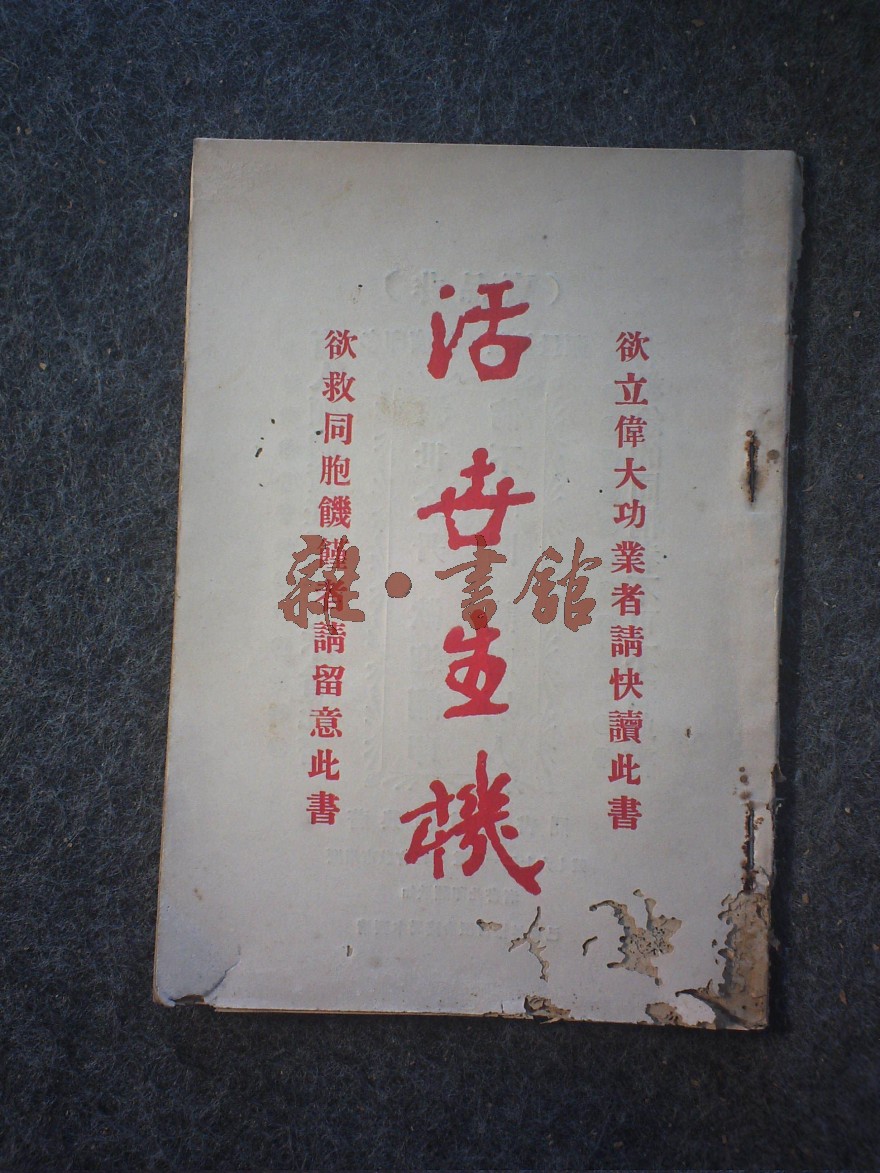 欲立偉大功業者請快讀此書
活世生機
欲救同胞饑饉者請留意此書
雜·書館